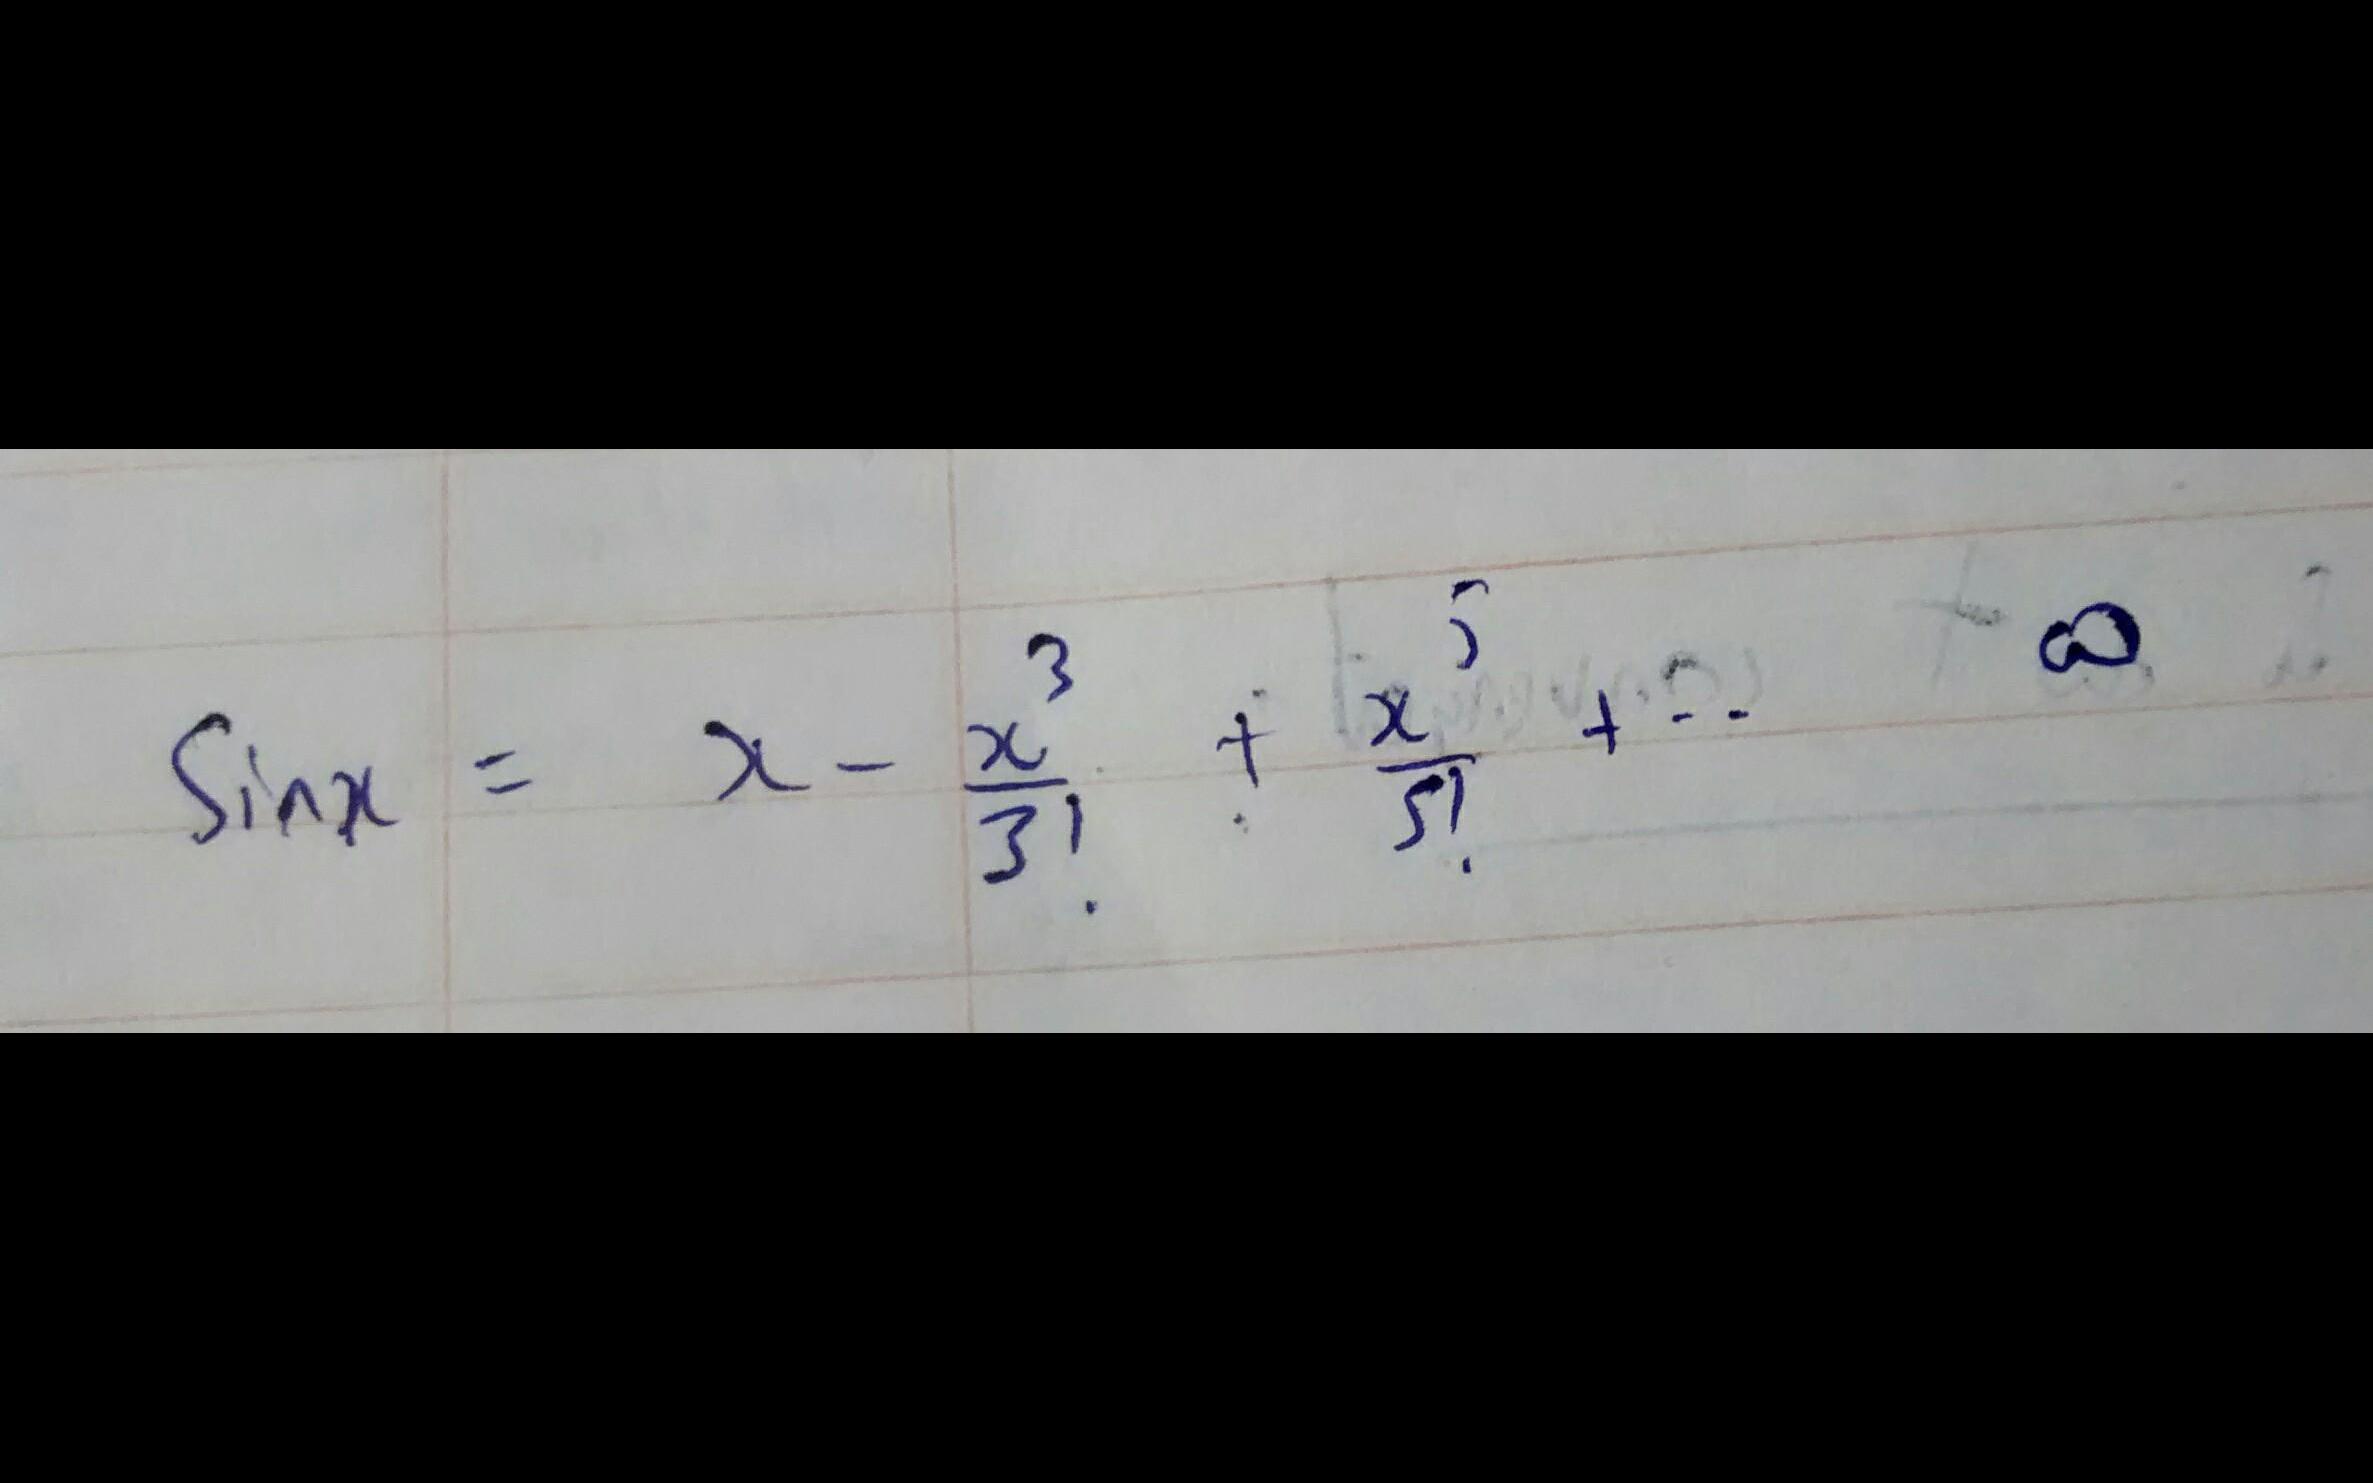 Sinx = x - x³/3! + x⁵/5! + -- ∞